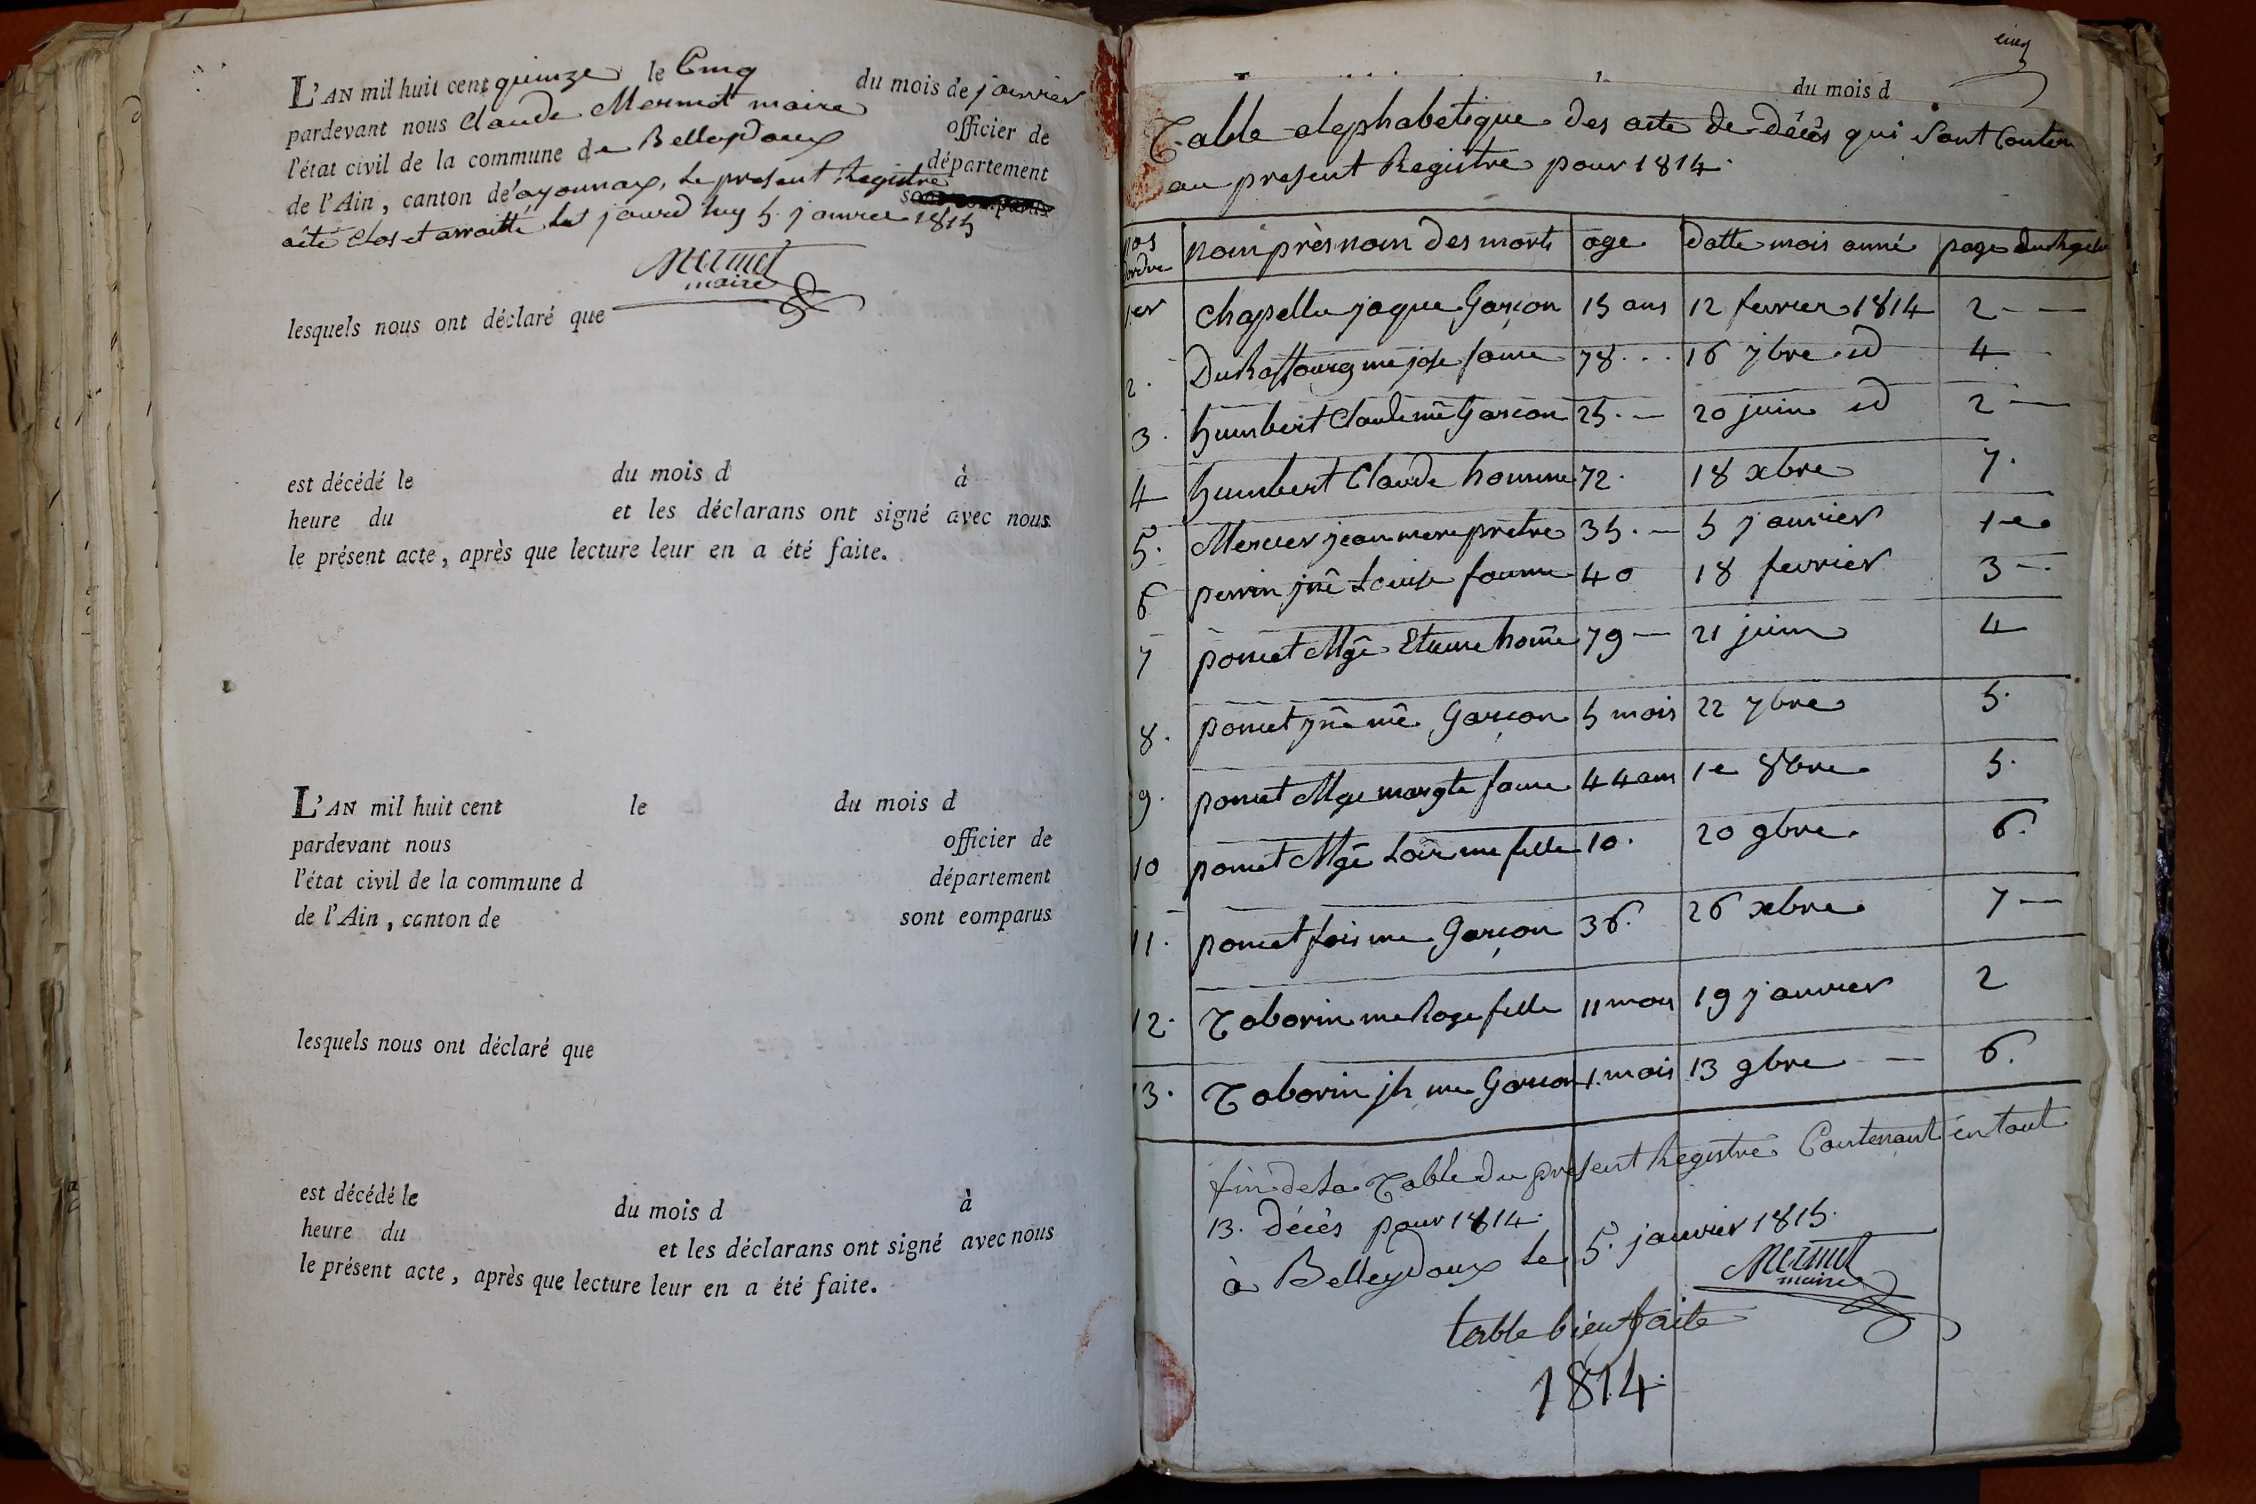 L'AN mil huit cent quinze le Cinq du mois de janvier
pardevant nous Claude Mermet maire officier de
l'état civil de la commune de Belleydoux département
de l'Ain, canton de oyonnax, le present Registre sont comparus
aêtê Clos et arraitté le jourd huy 5. janvier 1815
Mermet
maire
lesquels nous ont déclaré que
est décédé le du mois d à
heure du et les déclarans ont signé avec nous
le présent acte, après que lecture leur en a été faite.
L'AN mil huit cent le du mois d
pardevant nous officier de
l'état civil de la commune d département
de l'Ain, canton de sont comparus
lesquels nous ont déclaré que
est décédé le du mois d à
heure du et les déclarans ont signé avec nous
le présent acte, après que lecture leur en a été faite.
cinq
du mois d
Table alephabetique des acte de décês qui sont Conten
au present Registre pour 1814.
nos dordre nom près nom des morts age datte mois anné page du Registre
1er Chapellu jaque Garçon 15 ans 12 fevrier 1814 2
2. Duraffourg me jose fame 78 16 7bre id 4
3. humbert Claude mê Garcon 25. 20 juin id 2
4 humbert Claude homme 72. 18 xbre 7.
5. Mercier jean mere pretre 35. 5 janvier 1e
6 perrin jnê Louise famme 40 18 fevrier 3
7 poncet Mgê Etiene homê 79 21 juin 4
8. poncet jnê mê Garçon 5 mois 22 7bre 5.
9. poncet Mge margte fame 44 ans 1e 8bre 5.
10 poncet Mgê me fille 10. 20 9bre. 6.
11. poncet fois me Garçon 36. 26 xbre 7
12. Taborin me Roze fille 11 mois 19 janvier 2
13. Taborin jh me Garcon 1. mois 13 9bre 6.
fin de La Table du present Registre Contenant en tout
13. décês pour 1814.
à Belleydoux le 5. janvier 1815.
Mermet
maire
table bien faite
1814.